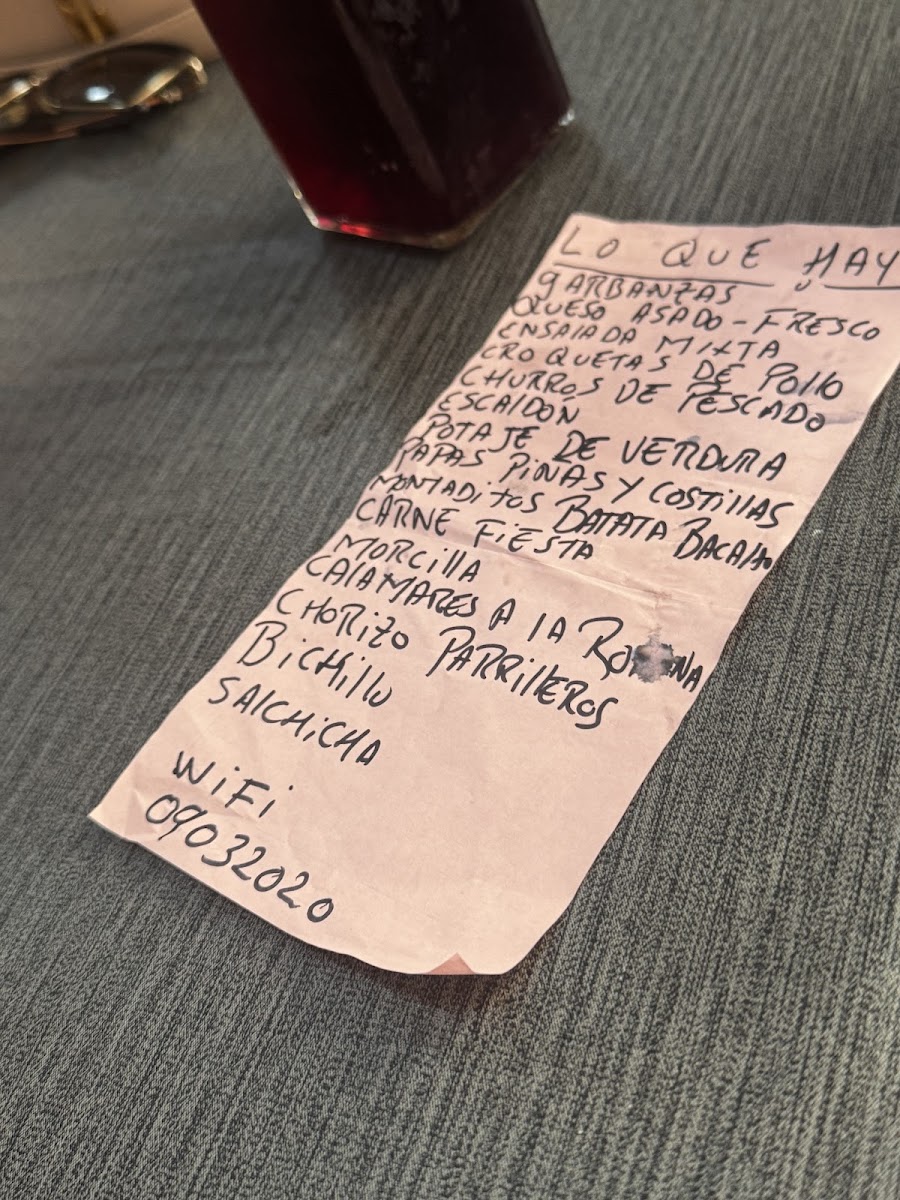 LO QUE HAY
GARBANZAS
QUESO ASADO - FRESCO
ENSALADA MIXTA
CROQUETAS DE POLLO
CHURROS DE PESCADO
ESCALDÓN
POTAJE DE VERDURA
PAPAS PIÑAS Y COSTILLAS
MONTADITOS BATATA BACALAO
CARNE FIESTA
MORCILLA
CALAMARES A LA ROMANA
CHORIZO PARRILLEROS
BICHILLO
SALCHICHA
WIFI
09032020